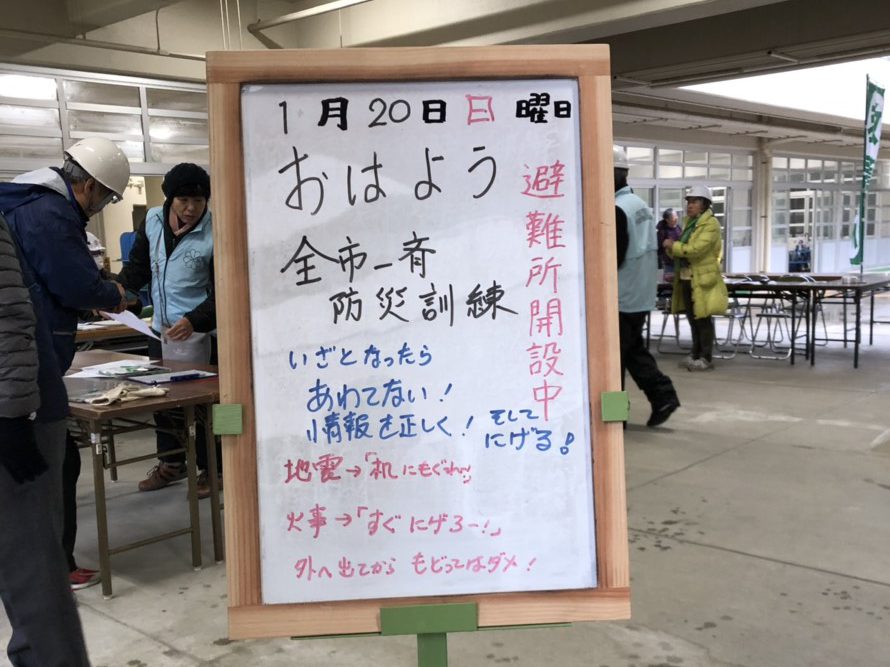 1月20日日曜日
おはよう
避難所開設中
全市一斉
防災訓練
いざとなったら
あわてない!
情報を正しく! そして
にげる!
地震→「机にもぐれ!」
火事→「すぐにげろー!」
外へ出てから もどってはダメ!